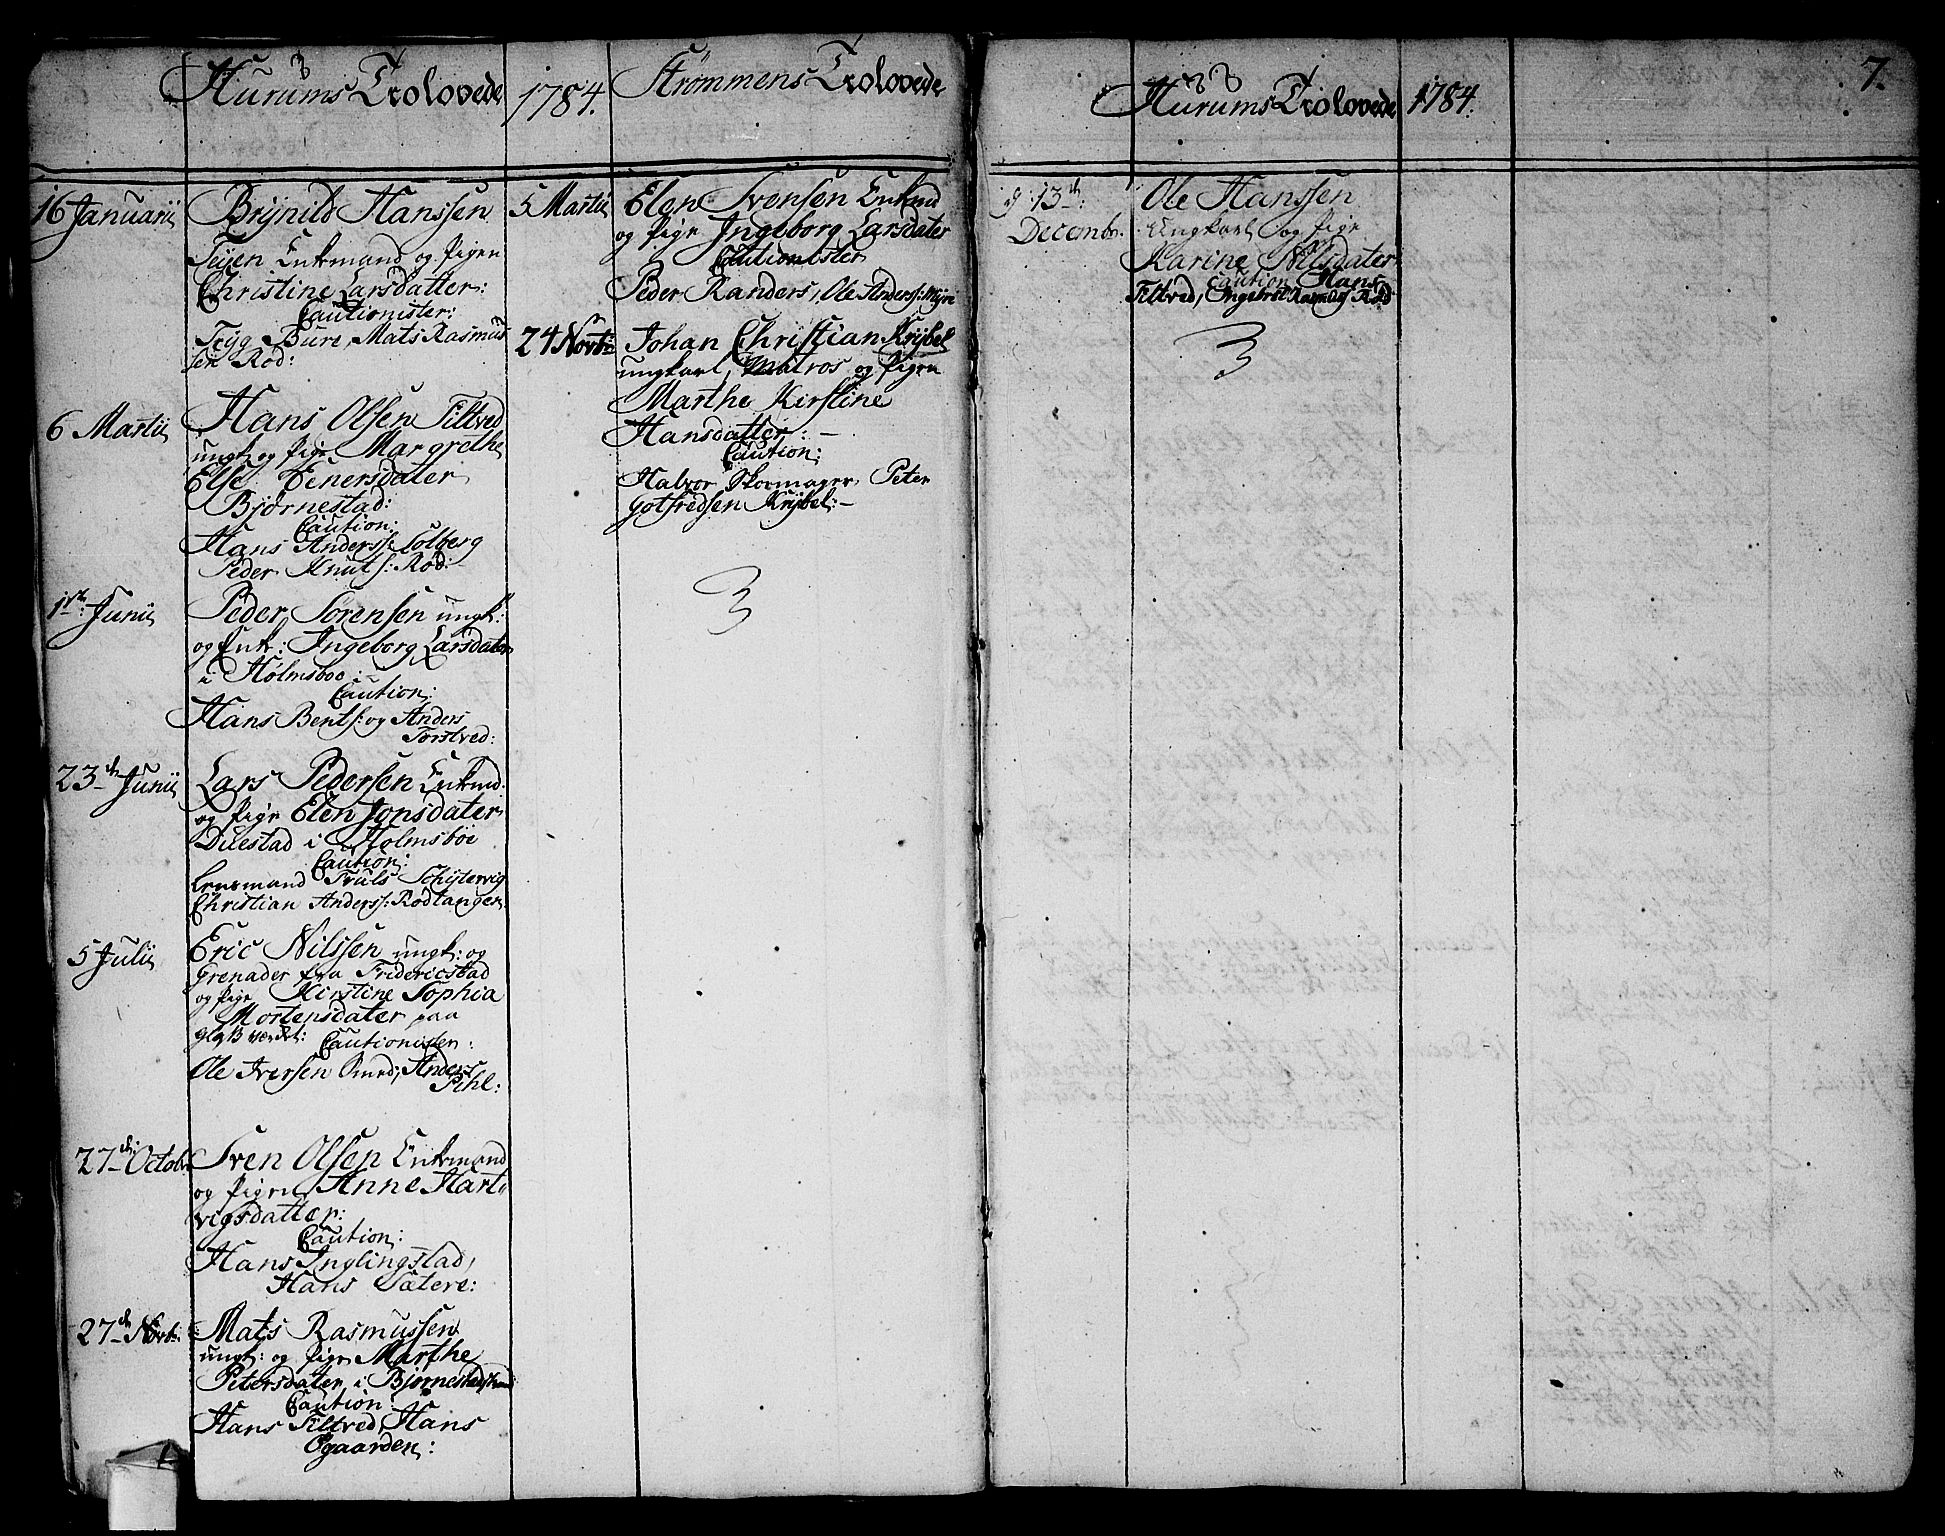 Hurums Trolovede
1784.
16 Januarii
Brynild Hanssen
Teien Enkmand og Pigen
Christine Larsdatter:
Cautionister:
Tryg Bure, Mats Rasmus
sen Rød:
6 Martii
Hans Olsen Tiltved
ungk: og Pige Margrethe
Else Henersdater
Bjørnestad:
Caution:
Hans Anderss: Solberg
Peder Knuts: Rød:
1ste Junii
Peder Sørensen ungk:
og Enk: Ingeborg Larsdater
i Holmsboe:
Caution:
Hans Bents: og Anders
Torstved:
23de Junii
Lars Pedersen Enkmd:
og Pige Elen Jonsdater
Duestad i Holmsbøe
Caution:
Lensmand Truls Schytervig
Christian Anderss: Rødtangen
5 Julii
Eric Nilssen ungk: og
Grenader fra Fridericstad
og Pige Kirstine Sophia
Mortensdater paa
Glasværket:
Cautionister:
Ole Iversen Smed, Anders
Pihl:
27de Octobr
Sven Olsen Enkmand
og Pigen Anne Hart
vigsdatter:
Caution:
Hans Inglingstad,
Hans Sætere:
27de Novbr:
Mats Rasmussen
ungk: og Pige Marthe
Petersdater i Bjørnestad
Caution:
Hans Tiltved, Hans
Øgaarden:
Strømmens Trolovede
5 Martii
Elen Svensen Enkmd
og Pige Ingeborg Larsdater
Cautionister
Peder Randers, Ole Anderss: Myre
24 Novbr:
Johan Christian Krybel
ungkarl, Matros og Pigen
Marthe Kirstine
Hansdatter: -
Caution:
Halvor Skoemager, Peter
Gotfredsen Krybel: -
3
7.
Hurums Trolovede
1784.
d: 13de:
Decembr.
Ole Hanssen
Ungkarl og Pige
Karine Nilsdater
Caution Hans
Tiltved, Ingebret Rasmuss Rød
3